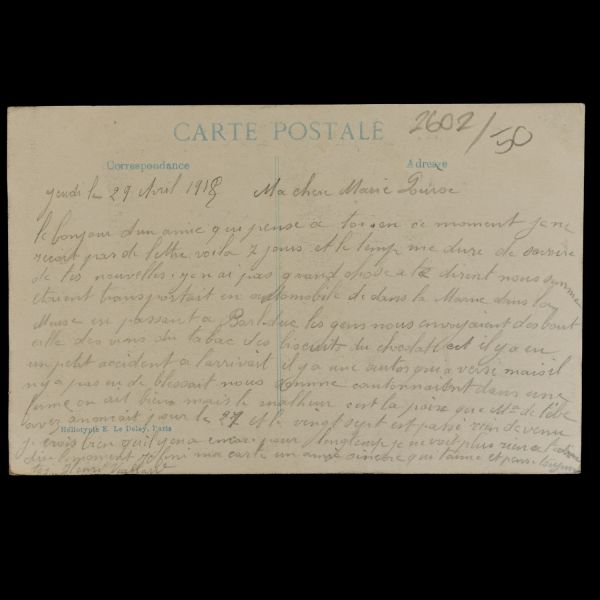 2602/50
CARTE POSTALE
Correspondance
Adresse
Jeudi le 29 Avril 1915 Ma cher Marie
le bonjour d'un amie qui pense a toi en ce moment je ne
recoit pas de lettre voila 7 jours et le temp me dure de savoire
de tes nouvelles je n'ai pas grand chose a te dirent nous somme
etaient transportait en automobile de dans la Marne dans la
Meuse en passant a Barleduc les gens nous envoyaient des bout
eille des vins du tabac des biscuits du chocolat et il y a eu
un petit accident a l'arrivait il y a une autos qui a verse mais il
n'y a pas eu de blessait nous somme cantonnaient dans une
ferme on ait bien mais le malheur c'est la paix que Mme de
avez anoncait pour le 27 et le vingt sept est passé rien de venu
Héliotypie E. Le Deley, Paris
je crois bien qu'il y en a encore pour longtemp je ne voit plus rien a te
dire le moment je fini ma carte un amie sincère qui t'aime et pense toujours
a toi Henri